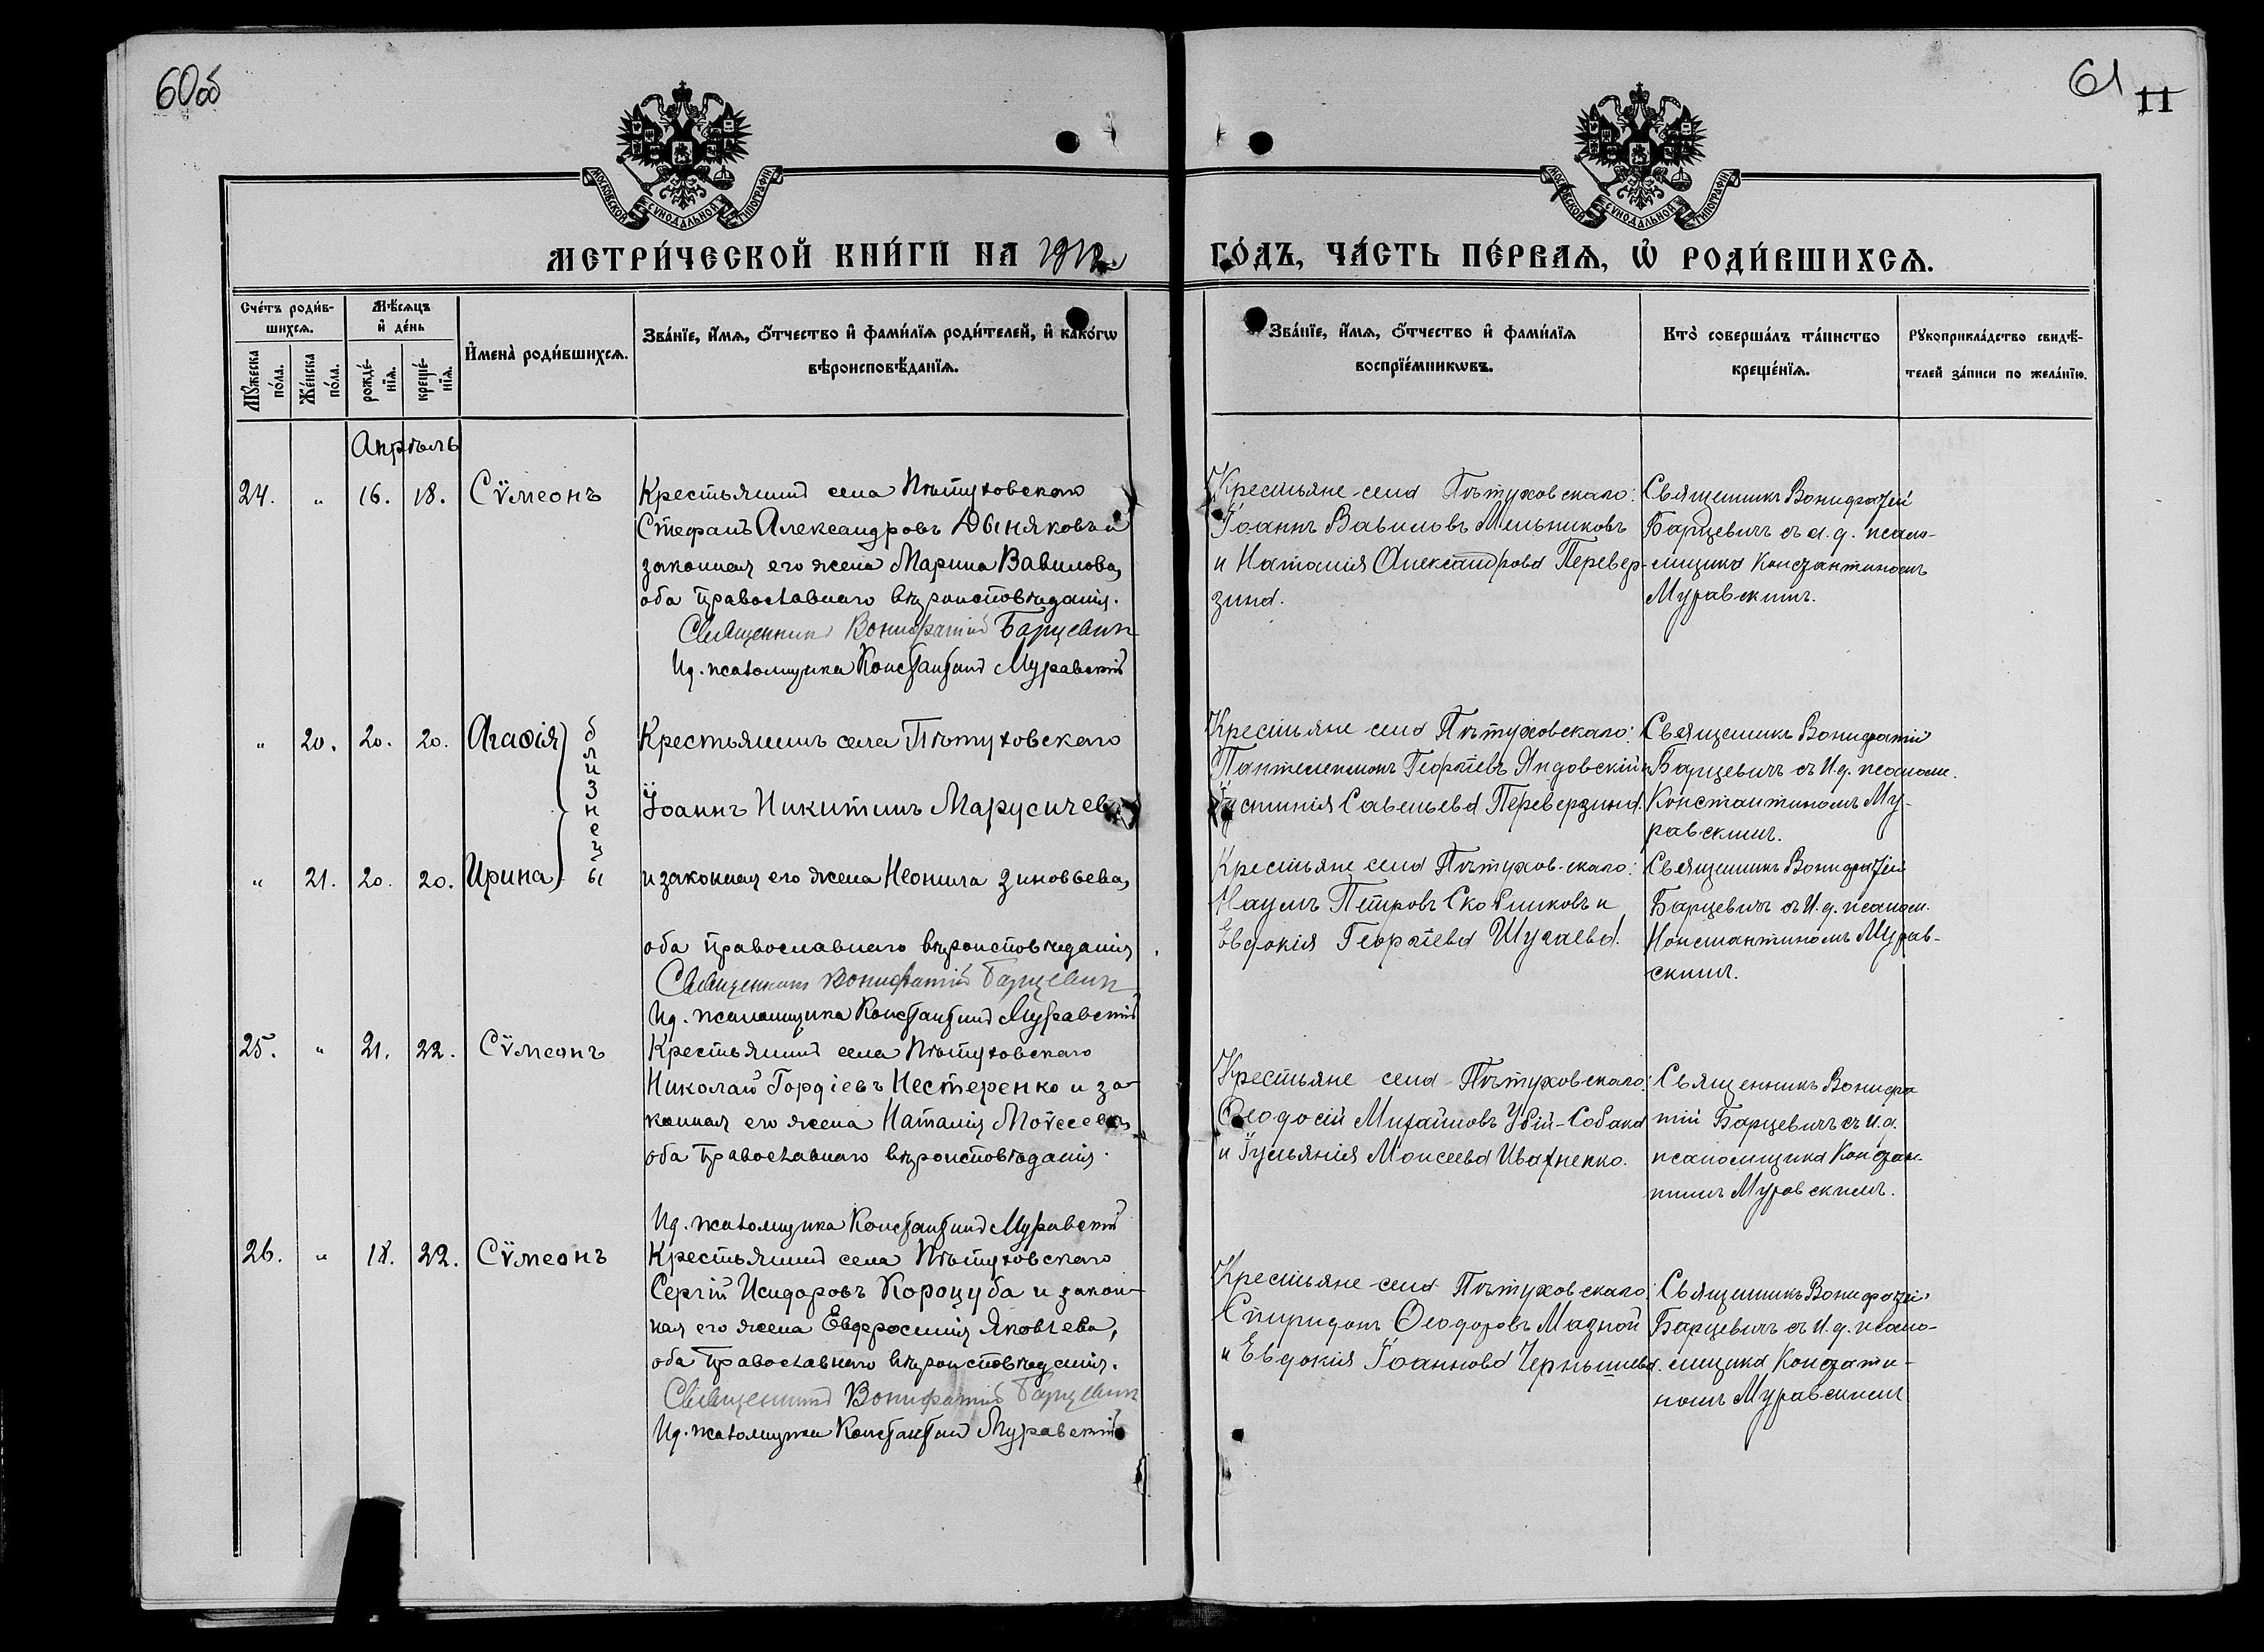 60об
61
11
МОСКОВСКОЙ СѴНОДАЛЬНОЙ ТИПОГРАФІИ
МОСКОВСКОЙ СѴНОДАЛЬНОЙ ТИПОГРАФІИ
МЕТРИ́ЧЕСКОЙ КНИ́ГИ НА
ГО́ДЪ, ЧА́СТЬ ПЕ́РВАѦ, Ѡ҆ РОДИ́ВШИХСѦ.
Сче́тъ роди́в-
шихсѧ.
Мꙋ́жеска по́ла.
Же́нска по́ла.
Мѣ́сѧцъ
и҆ де́нь
рожде́-
нїѧ.
креще́-
нїѧ.
И҆мена̀ роди́вшихсѧ.
Зва́нїе, и҆́мѧ, ѻ҆́тчество и҆ фами́лїѧ роди́телей, и҆ како́гѡ
вѣроисповѣ́данїѧ.
Зва́нїе, и҆́мѧ, ѻ҆́тчество и҆ фами́лїѧ
воспрїе́мникѡвъ.
Кто̀ соверша́лъ та́инство
креще́нїѧ.
Рꙋкоприкла́дство свидѣ́-
телей за́писи по жела́нїю.
Апрѣль
24. " 16. 18. Сѵмеонъ
Крестьянинъ села Пѣтуховскаго
Стефанъ Александровъ Дыняковъ и
законная его жена Марина Вавилова,
оба православнаго вѣроисповѣданія.
Священникъ Вонифатій Барцевичъ
Ид. псаломщика Константинъ Муравскій
Крестьяне села Пѣтуховскаго:
Іоаннъ Вавиловъ Мельниковъ
и Наталія Александрова Перевер-
зина.
Священникъ Вонифатій
Барцевичъ съ и. д. псало-
мщика Константиномъ
Муравскимъ.
" 20. 20. 20. Агаѳія
близнецы
" 21. 20. 20. Ирина
Крестьянинъ села Пѣтуховскаго
Іоаннъ Никитинъ Марусичев
и законная его жена Неонила Зиновьева,
оба православнаго вѣроисповѣданія
Священникъ Вонифатій Барцевичъ
Ид. псаломщика Константинъ Муравскій
Крестьяне села Пѣтуховскаго:
Пантелеимонъ Георгіевъ Яндовскій и
Іустинія Савельева Переверзина.
Священникъ Вонифатій
Барцевичъ съ И. д. псалом.
Константиномъ Му-
равскимъ.
Крестьяне села Пѣтуховскаго:
Наумъ Петровъ и
Евдокія Георгіева Шугаева.
Священникъ Вонифатій
Барцевичъ съ И. д. псалом.
Константиномъ Мурав-
скимъ.
25. " 21. 22. Сѵмеонъ
Крестьянинъ села Пѣтуховскаго
Николай Гордіевъ Нестеренко и за-
конная его жена Наталія Моѵсеева,
оба православнаго вѣроисповѣданія.
Ид. псаломщика Константинъ Муравскій
Крестьяне села Пѣтуховскаго:
Ѳеодосій Михайловъ Убій-Собака
и Іуліанія Моисеева Ивахненко.
Священникъ Вонифа
тій Барцевичъ съ И.д.
псаломщика Констан-
тиномъ Муравскимъ.
26. " 18. 22. Сѵмеонъ
Крестьянинъ села Пѣтуховскаго
Сергій Исидоровъ Короцуба и закон-
ная его жена Евфросинія Яковлева,
оба православнаго вѣроисповѣданія.
Священникъ Вонифатій Барцевичъ
Ид. псаломщика Константинъ Муравскій
Крестьяне села Пѣтуховскаго
Спиридонъ Ѳеодоровъ Мазной
и Евдокія Іоаннова Чернышева.
Священникъ Вонифатій
Барцевичъ съ И. д. псало-
мщика Констати-
номъ Муравскимъ